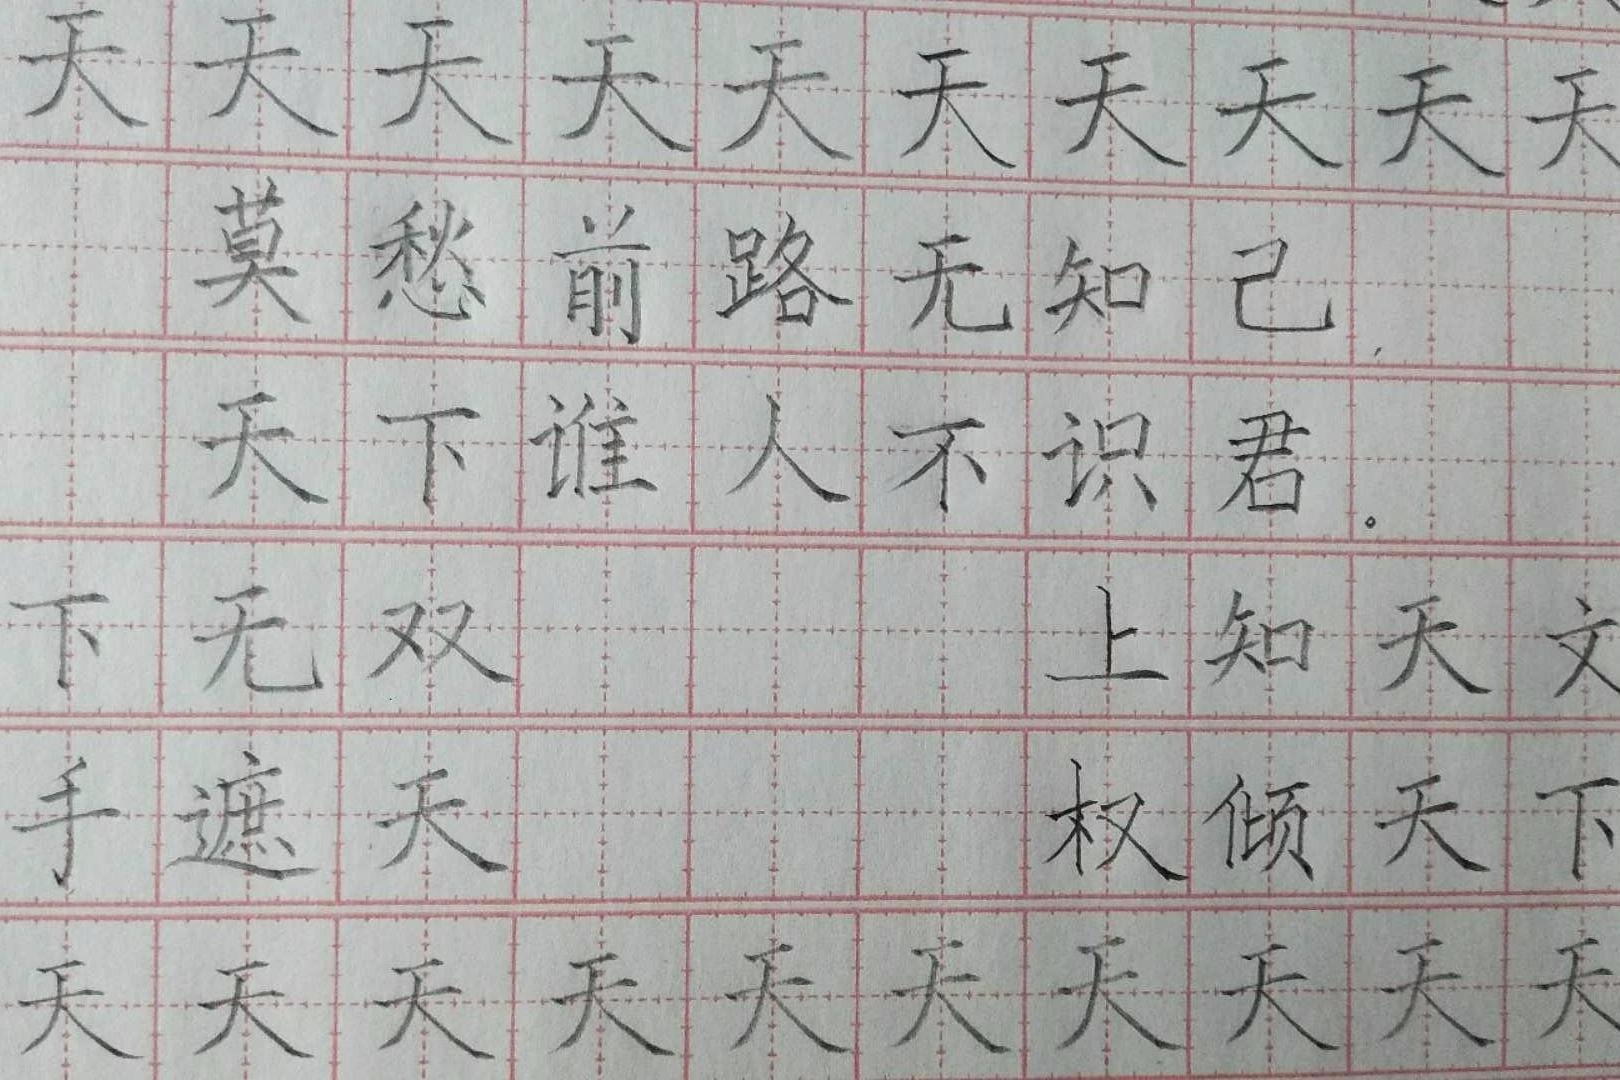 天天天天天天天天天天
莫愁前路无知己,
天下谁人不识君。
下无双 上知天文
手遮天 权倾天下
天天天天天天天天天天